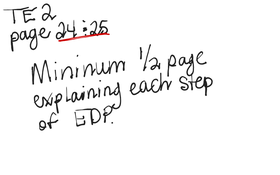 TE2
page 24:25
Mininum 1/2 page
explaining each step
of EDP.